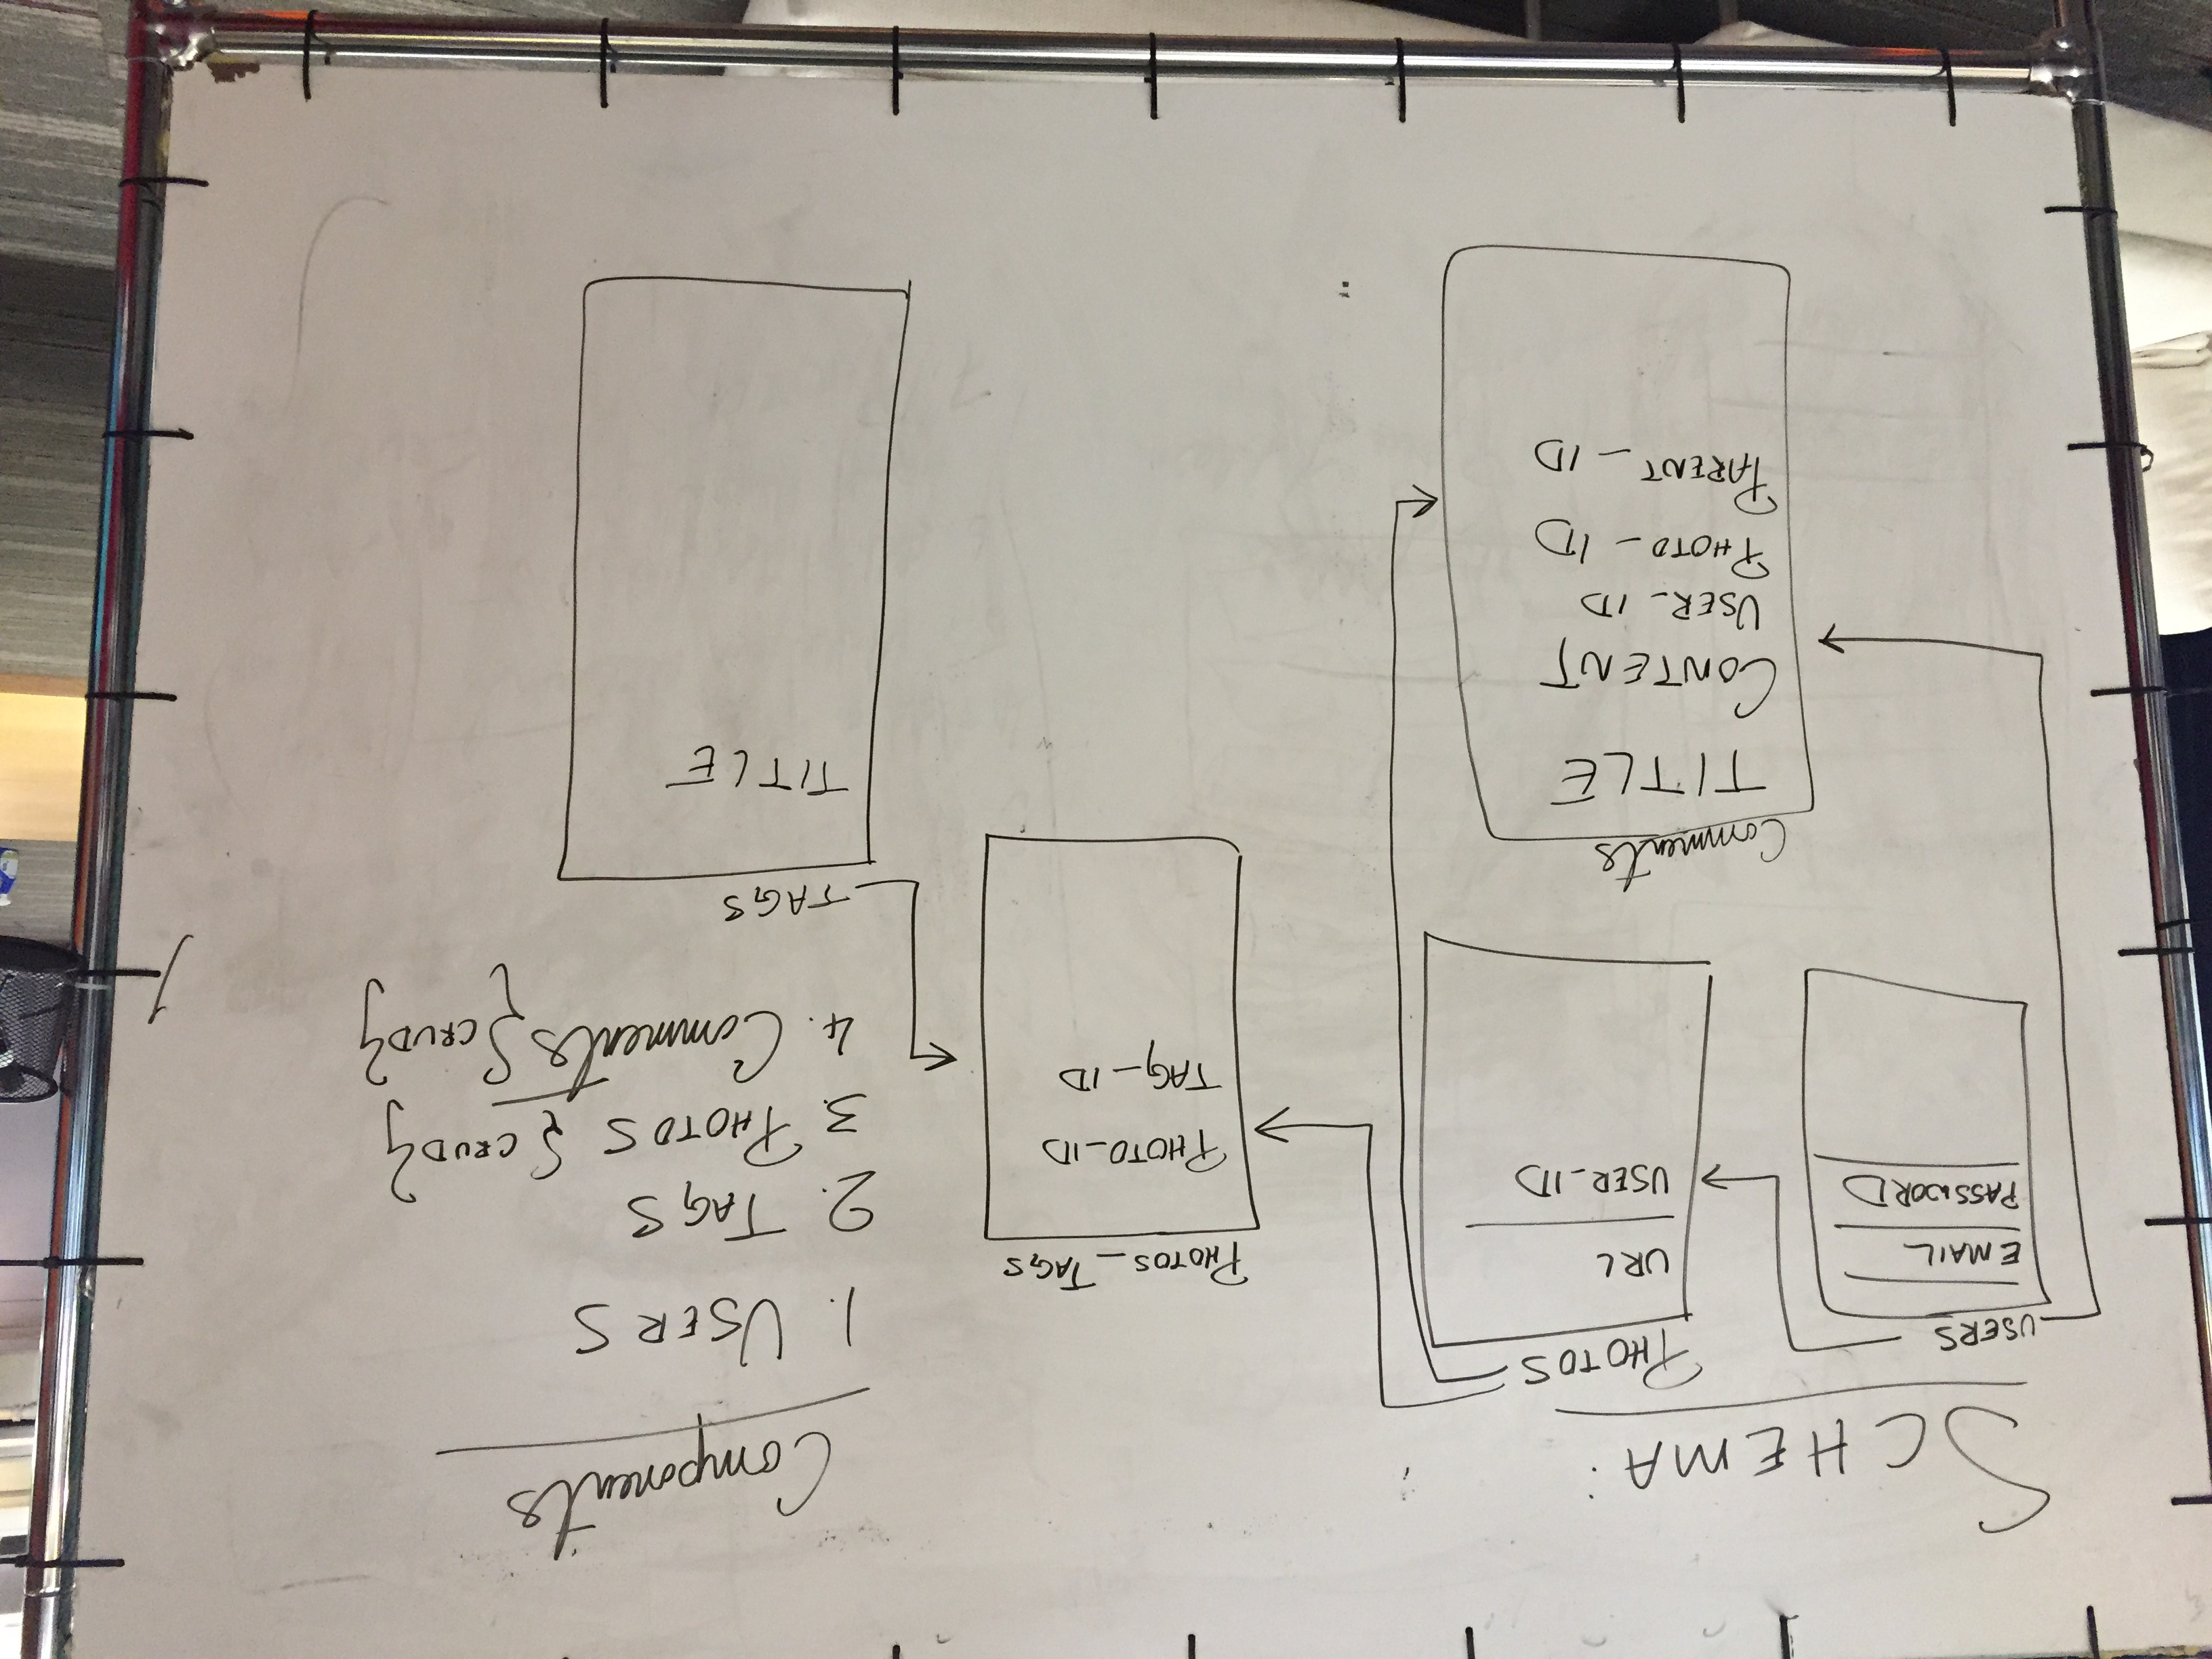 SCHEMA:
USERS
EMAIL
PASSWORD
PHOTOS
URL
USER_ID
PHOTOS_TAGS
PHOTO_ID
TAG_ID
Comments
TITLE
CONTENT
USER_ID
PHOTO_ID
PARENT_ID
Components
1. USERS
2. TAGS
3. PHOTOS {CRUD}
4. Comments {CRUD}
TAGS
TITLE